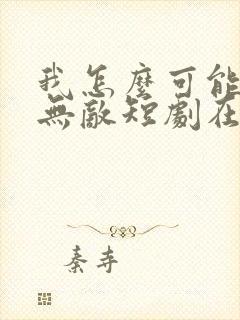 我怎麼可能
無敵短劇在
秦寺